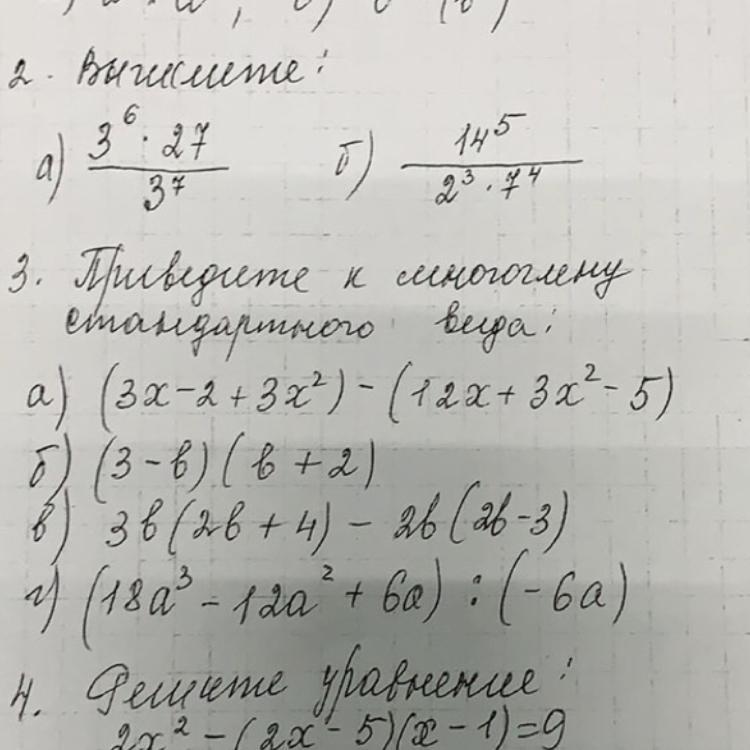 2. Вычислите:
а) (3^6 · 27)/(3^7) б) (14^5)/(2^3 · 7^4)
3. Приведите к многочлену
стандартного вида:
а) (3x-2+3x²)-(12x+3x²-5)
б) (3-b)(b+2)
в) 3b(2b+4)-2b(2b-3)
г) (18a³-12a²+6a):(-6a)
4. Решите уравнение:
2x²-(2x-5)(x-1)=9